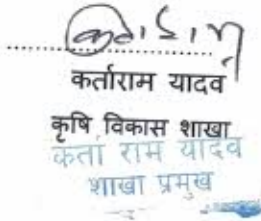 कर्ताराम यादव
कृषि विकास शाखा
कर्ता राम यादव
शाखा प्रमुख